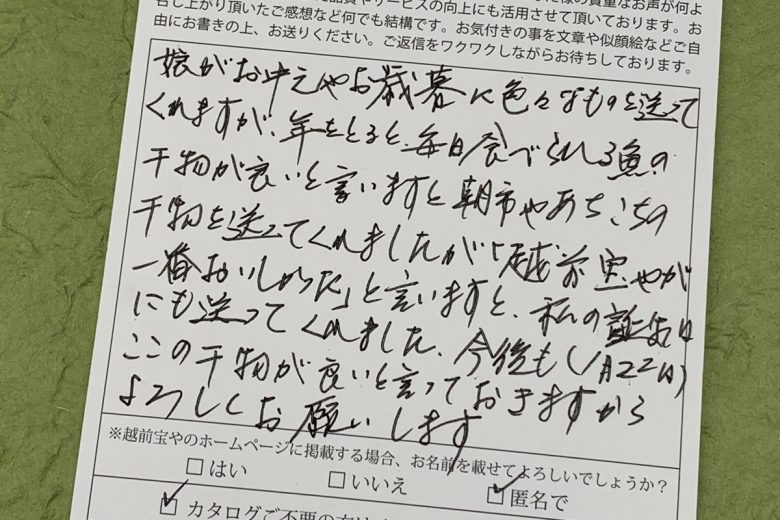 た品質やサービスの向上にも活用させて頂いております。お
召し上がり頂いたご感想など何でも結構です。お気付きの事を文章や似顔絵などご自
由にお書きの上、お送りください。ご返信をワクワクしながらお待ちしております。
娘がお中元やお歳暮に色々なものを送って
くれますが、年をとると、毎日食べられる魚の
干物が良いと言いますと朝市やあちこちの
干物を送ってくれましたが「越前宝やが
一番おいしかった」と言いますと、私の誕生日
にも送ってくれました、今後も(1月22日)
ここの干物が良いと言っておきますから
よろしくお願いします
※越前宝やのホームページに掲載する場合、お名前を載せてよろしいでしょうか?
□はい □いいえ ☑匿名で
☑カタログご不要の方は